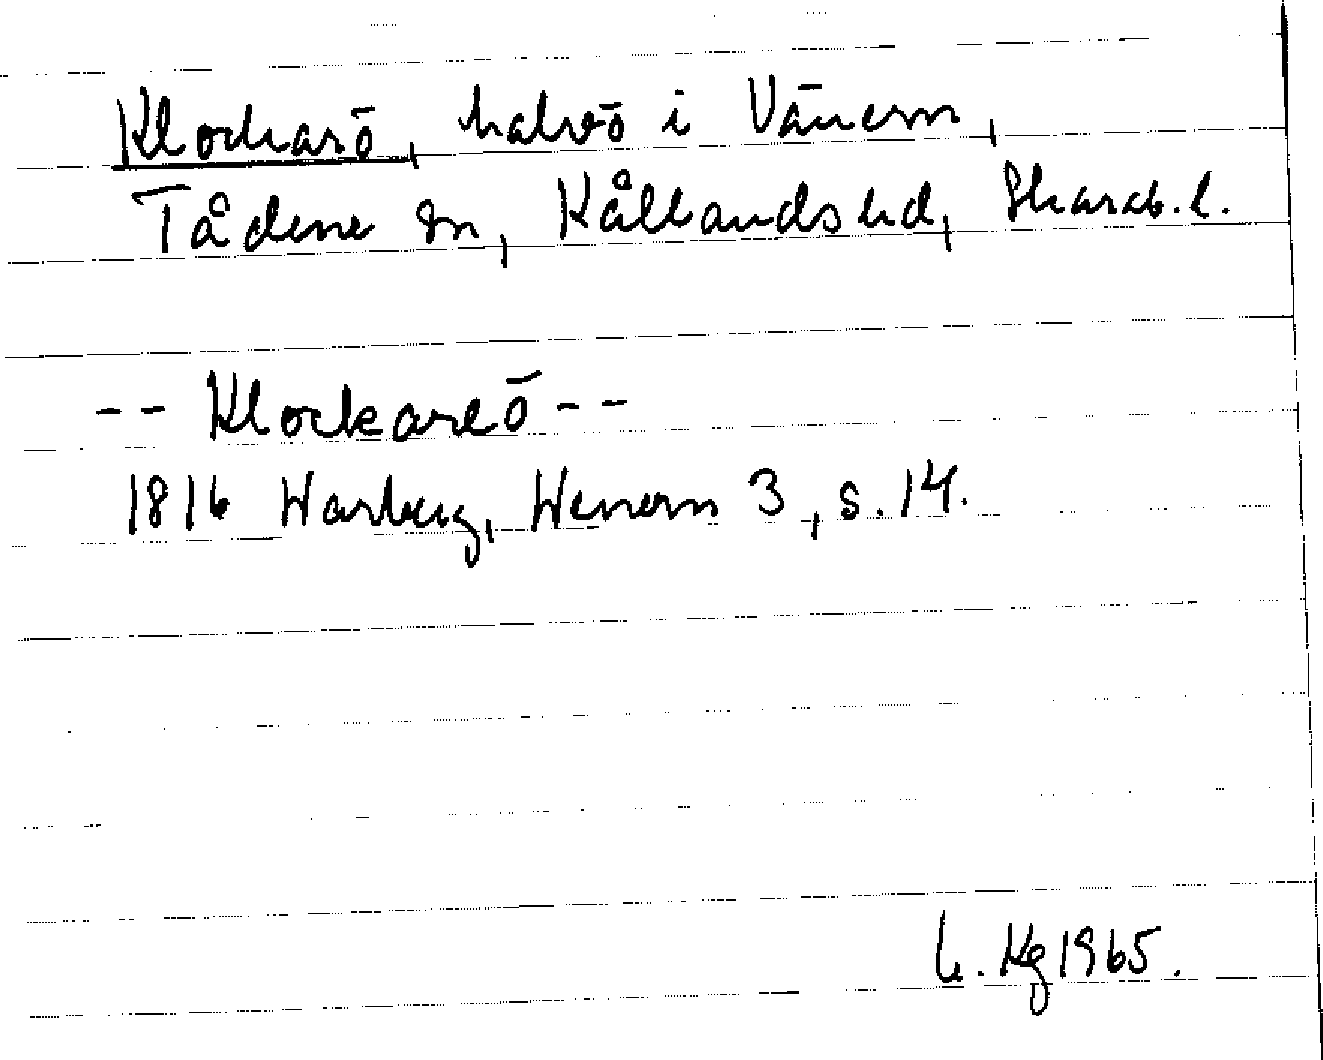 Klockarö, halvö i Vänern,
Tådene sn, Kållands hd, Skarab. l.
-- Klockareö --
1816 Warberg, Wenern 3, s. 14.
Kg 1965.